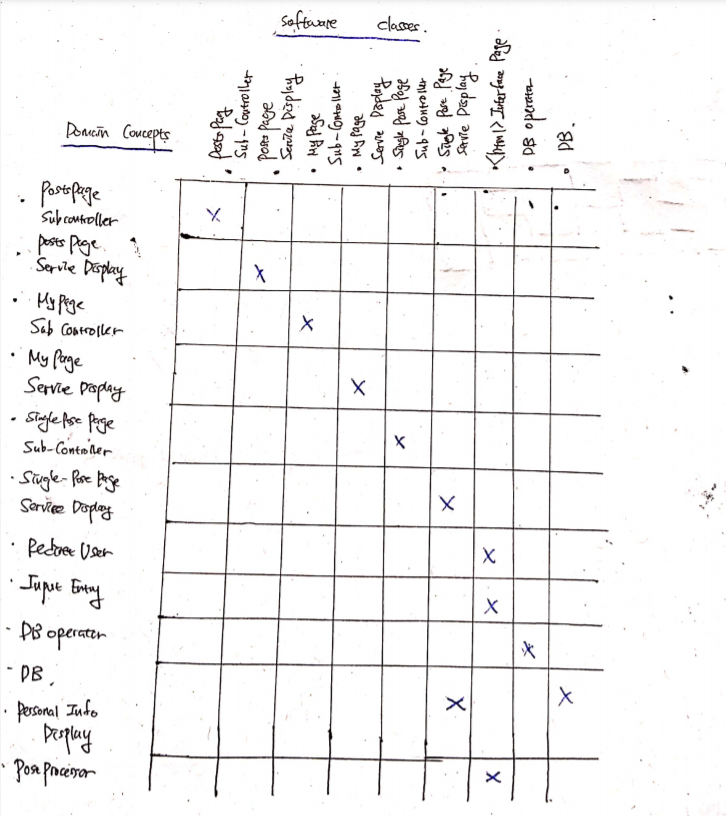 Software classes.
Domain Concepts
Posts Page
Sub-Controller
Posts Page
Service Display
My Page
Sub-Controller
My Page
Service Display
Single Post Page
Sub-Controller
Single Post Page
Service Display
<html> Interface Page
DB operator
DB.
Posts Page
Subcontroller
X
posts Page
Service Display
X
My Page
Sub Controller
X
My Page
Service Display
X
Single Post Page
Sub-Controller
X
Single-Post Page
Service Display
X
User
X
Input Entry
X
DB operator
X
DB.
X
Personal Info
Display
X
Post Processor
X